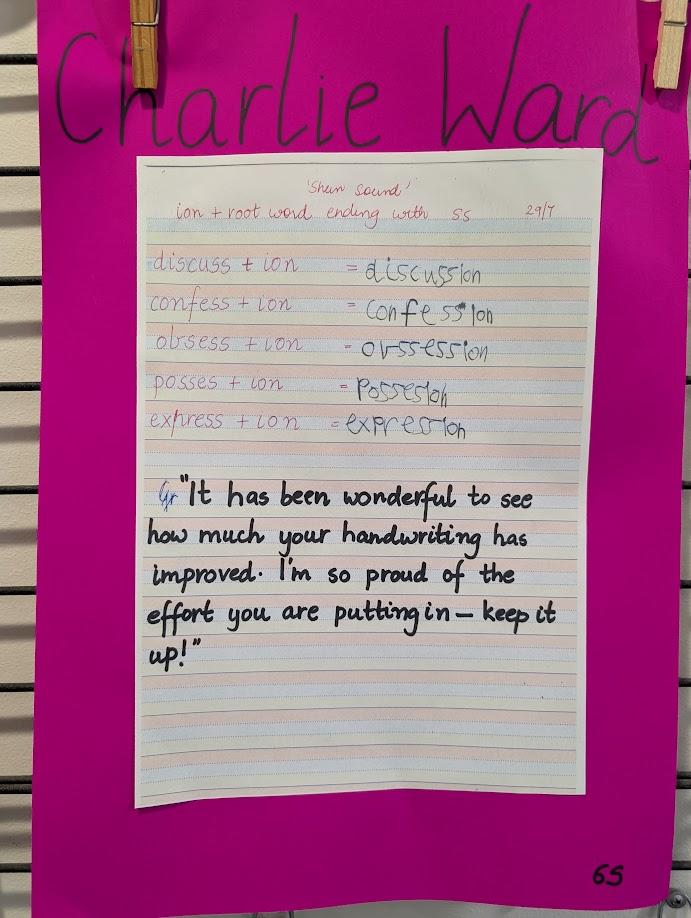 Charlie Ward
'Shun Sound'
ion + root word ending with ss 29/7
discuss + ion = discussion
confess + ion = confession
obsess + ion = obssession
posses + ion = possesion
express + ion = expression
"It has been wonderful to see
how much your handwriting has
improved. I'm so proud of the
effort you are putting in – keep it
up!"
65